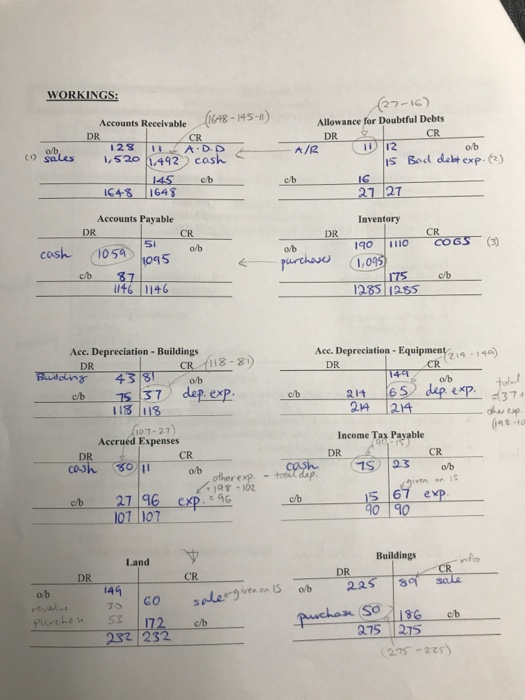 WORKINGS:
Accounts Receivable (1648-145-11)
DR CR
o/b 128 11 A.D.D
(1) sales 1,520 1,492 cash
145 c/b
1648 1648
(27-16)
Allowance for Doubtful Debts
DR CR
A/R 11 12 o/b
15 Bad debt exp. (2)
c/b 16
27 27
Accounts Payable
DR CR
51 o/b
cash 1059 1095
c/b 87
1146 1146
Inventory
DR CR
o/b 190 1110 COGS (3)
purchases 1,095
175 c/b
1285 1285
Acc. Depreciation - Buildings
DR CR (118-81)
Building 43 81 o/b
c/b 75 37 dep. exp.
118 118
Acc. Depreciation - Equipment (214-149)
DR CR
149 o/b
c/b 214 65 dep exp.
214 214
total
(37+
other exp
(107-27)
Accrued Expenses
DR CR
cash 80 11 o/b
other exp - total dep.
= 198 - 102
c/b 27 96 exp. = 96
107 107
Income Tax Payable
(90-15)
DR CR
cash 75 23 o/b
given on IS
c/b 15 67 exp.
90 90
Land
DR CR
o/b 149
30 60 sale given on IS
purchase 53
172 c/b
232 232
Buildings
DR CR info
o/b 225 89 sale
purchase 50 186 c/b
275 275
(275-225)